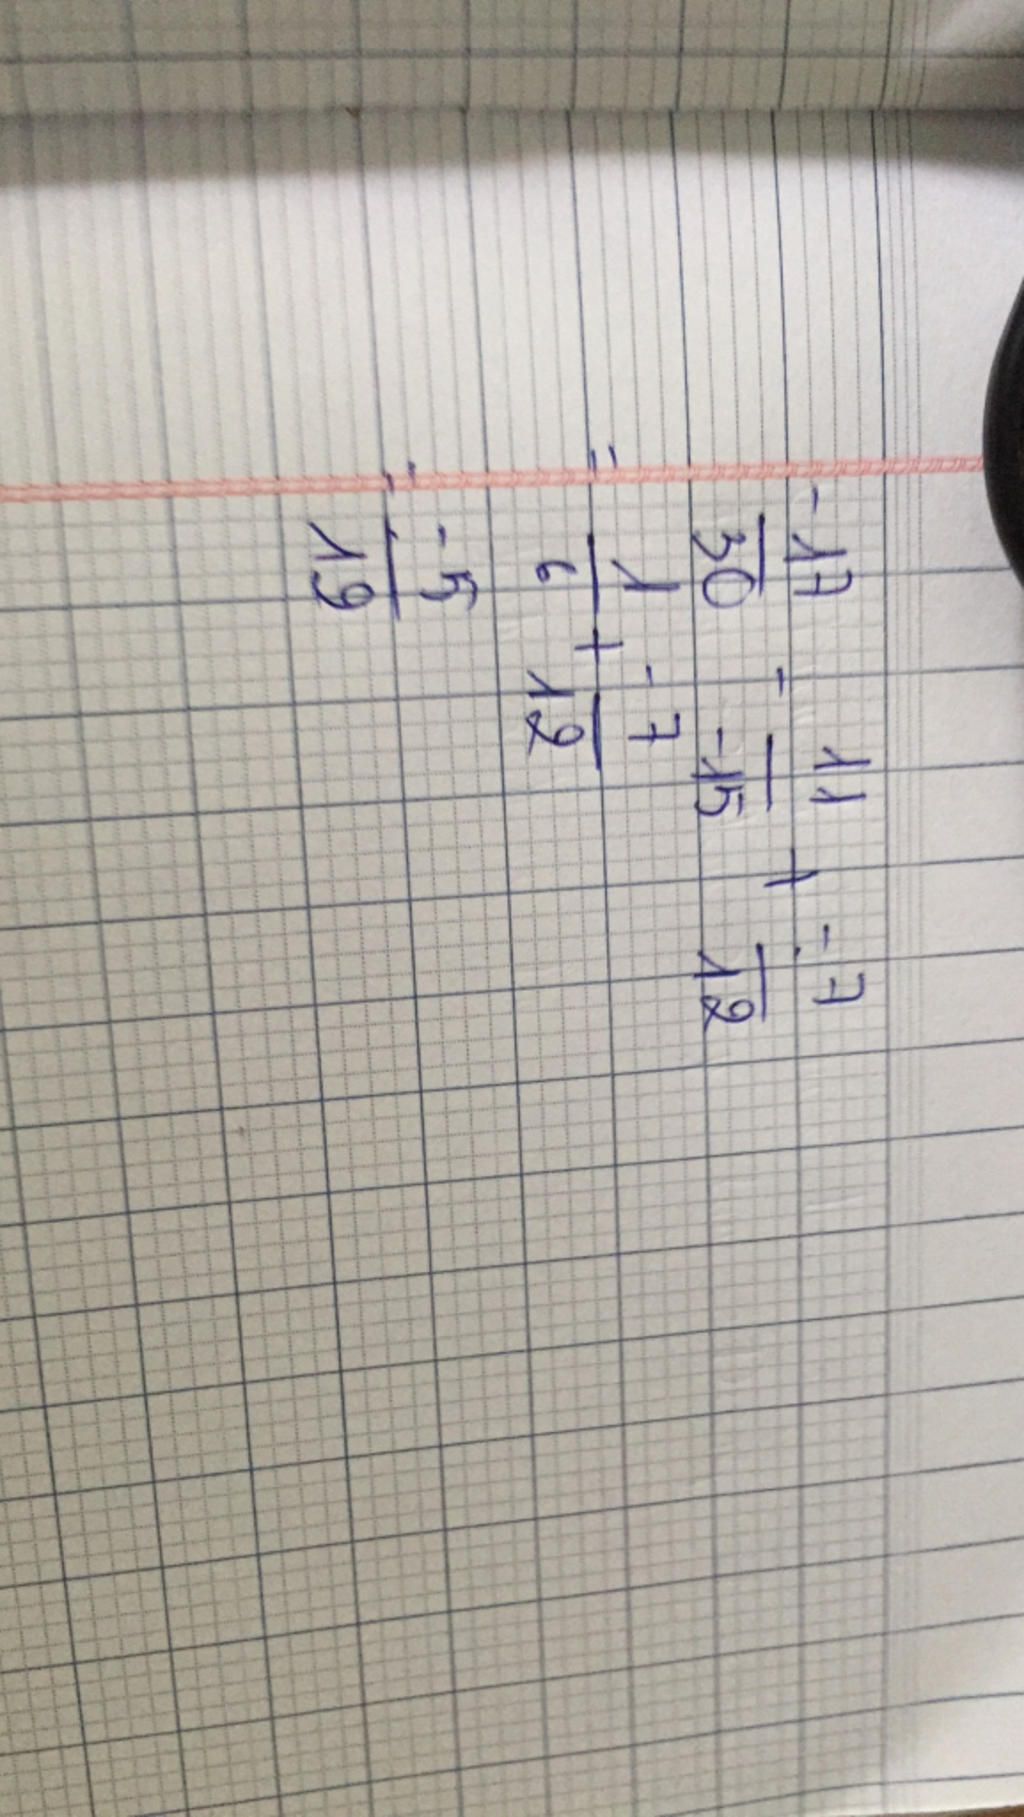 -17/30 - 11/-15 + -7/12
= 1/6 + -7/12
= -5/19